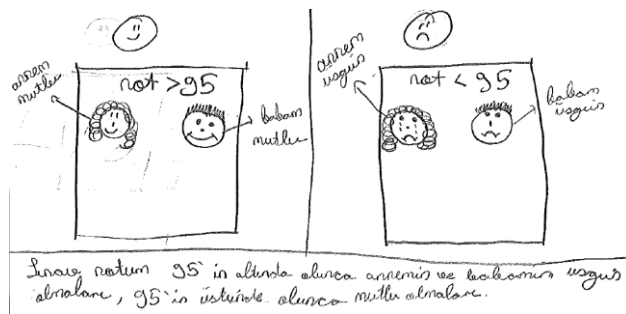 annem
mutlu
not > 95
babam
mutlu
annem
üzgün
not < 95
babam
üzgün
Sınav notum 95'in altında olunca annemin ve babamın üzgün
olmaları, 95'in üstünde olunca mutlu olmaları.